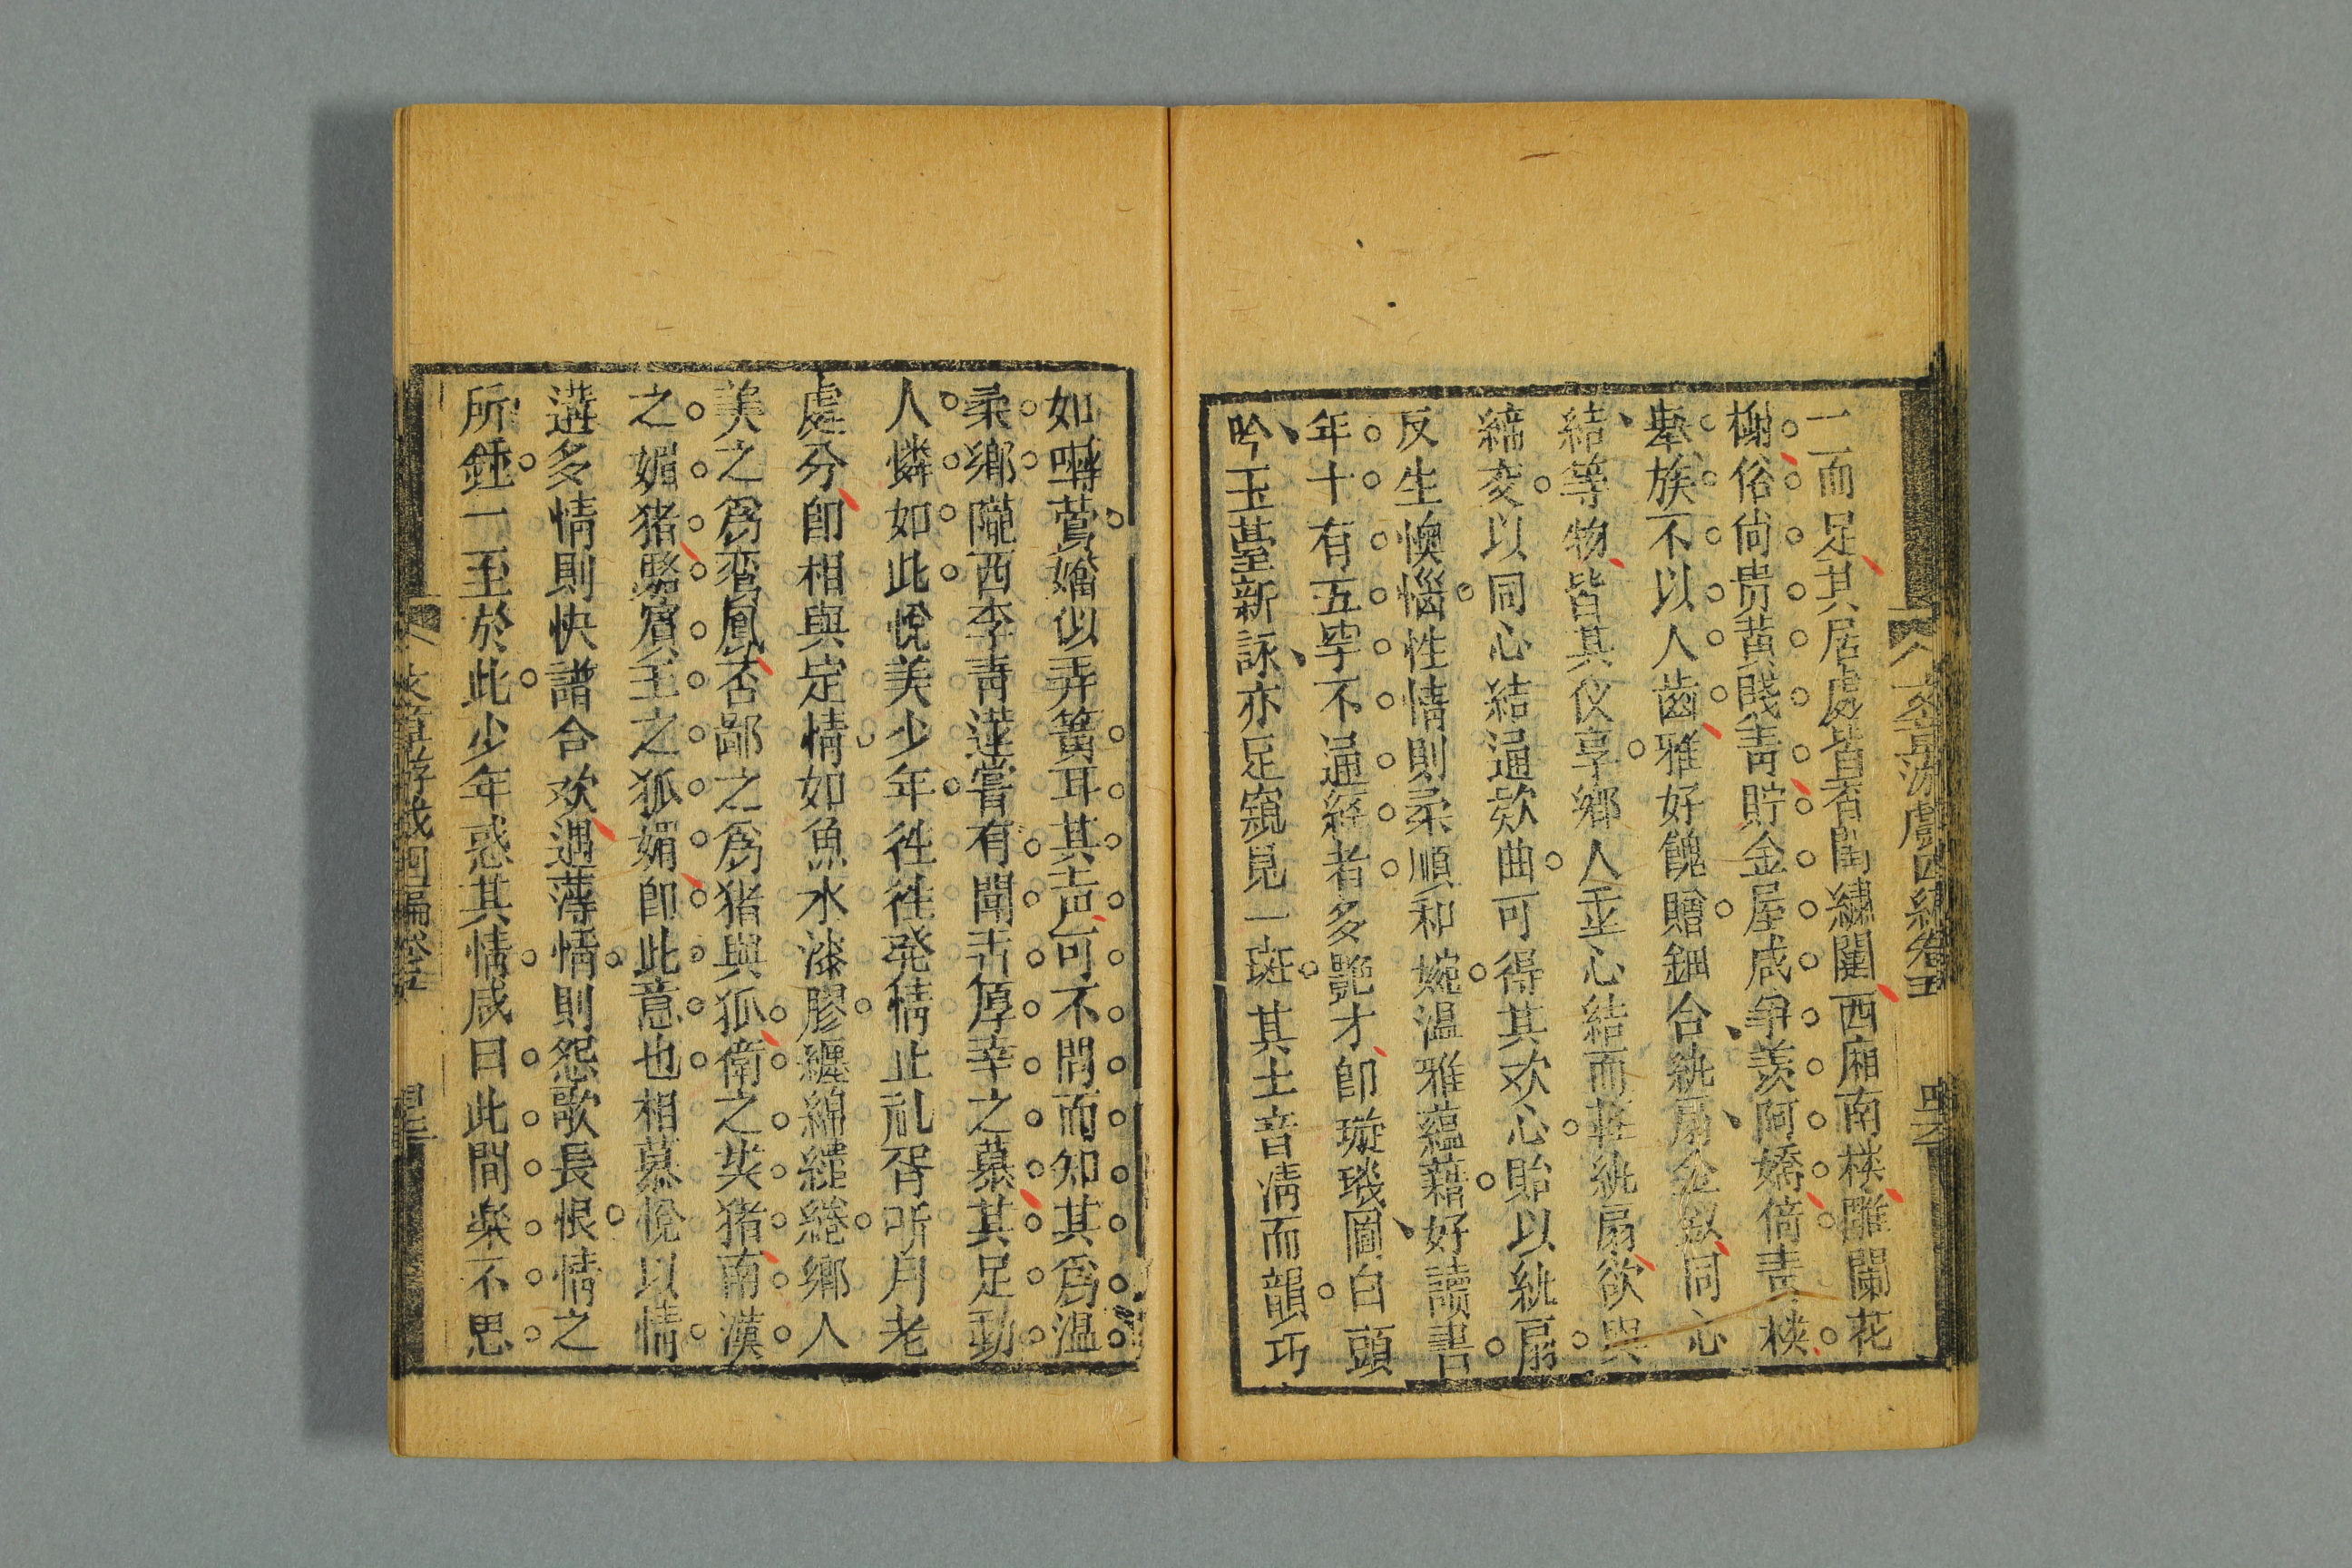 文章游戲四編卷五
一而足其居處皆有閨繡闥西廂南楼雕闌花
榭俗尙贵黄賤靑貯金屋咸爭羨阿嬌倚靑楼
舉族不以人齒雅好餽贈鈿合紈扇金釵同心
結等物皆其仪享鄉人並心結而軽紈扇欲與
締交以同心結通欵曲可得其欢心貽以紈扇
反生懊惱性情則柔順和婉温雅蘊藉好讀書
年十有五罕不通經者多艷才卽璇璣圖白頭
吟玉䑓新詠亦足窺見一斑其土音淸而韻巧
如囀鶯嬌似弄簧耳其声可不問而知其爲温
柔鄉隴西李靑蓮嘗有聞舌厚幸之慕其足動
人憐如此悅美少年徃徃発情止礼胥听月老
處分卽相與定情如魚水漆膠纏綿繾綣鄉人
美之爲鸾鳳否鄙之爲猪與狐衛之娄猪南漢
之媚猪駱賓王之狐媚卽此意也相慕悅以情
遘多情則快譜合欢遇薄情則怨歌長恨情之
所鍾一至於此少年惑其情咸曰此間楽不思
文章游戲四編卷五